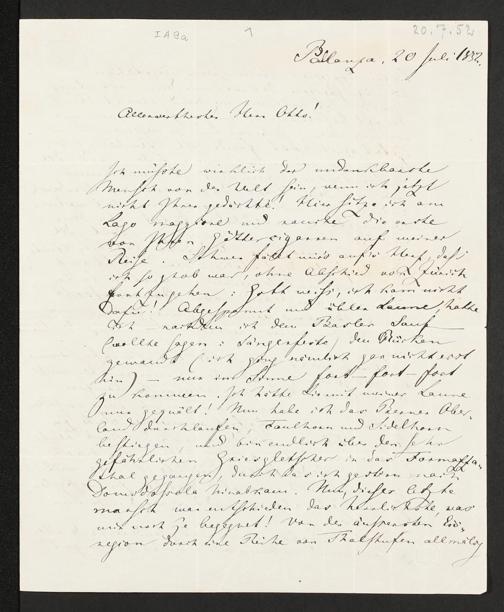 IA9a 1 20.7.52
Pallanza, 20 Juli 1852.
Allerwerthester Herr Otto!
Ich müßte wirklich der undankbarste
Mensch von der Welt sein, wenn ich jetzt
nicht Ihrer gedächte! Hier sitze ich am
Lago maggiore und rauche die erste
von Ihren Göttercigarren auf meiner
Reise. Schwer fällt mir's auf's Herz, daß
ich so grob war, ohne Abschied von Zürich
fortzugehen; Gott weiß, ich kam nicht
dazu! Abgespannt und übler Laune hatte
ich — nachdem ich dem Basler Sauf-
(wollte sagen: Sängerfeste) den Rücken
gewandt (ich ging nämlich gar nicht erst
hin) — nur im Sinne fort-fort-fort
zu kommen. Ich hätte Sie mit meiner Laune
nur gequält! Nun habe ich das Berner Ober-
land durchlaufen, Faulhorn und Sidelhorn
bestiegen, und bin endlich über den sehr
gefährlichen Griesgletscher in das Formazza-
thal gegangen, durch das ich gestern nach
Domodossola hinabkam. Nun, dieser letzte
marsch war entschieden das herrlichste, was
mir noch so begegnet! Von der äußersten Eis-
region durch eine Reihe von Thalstufen allmälig